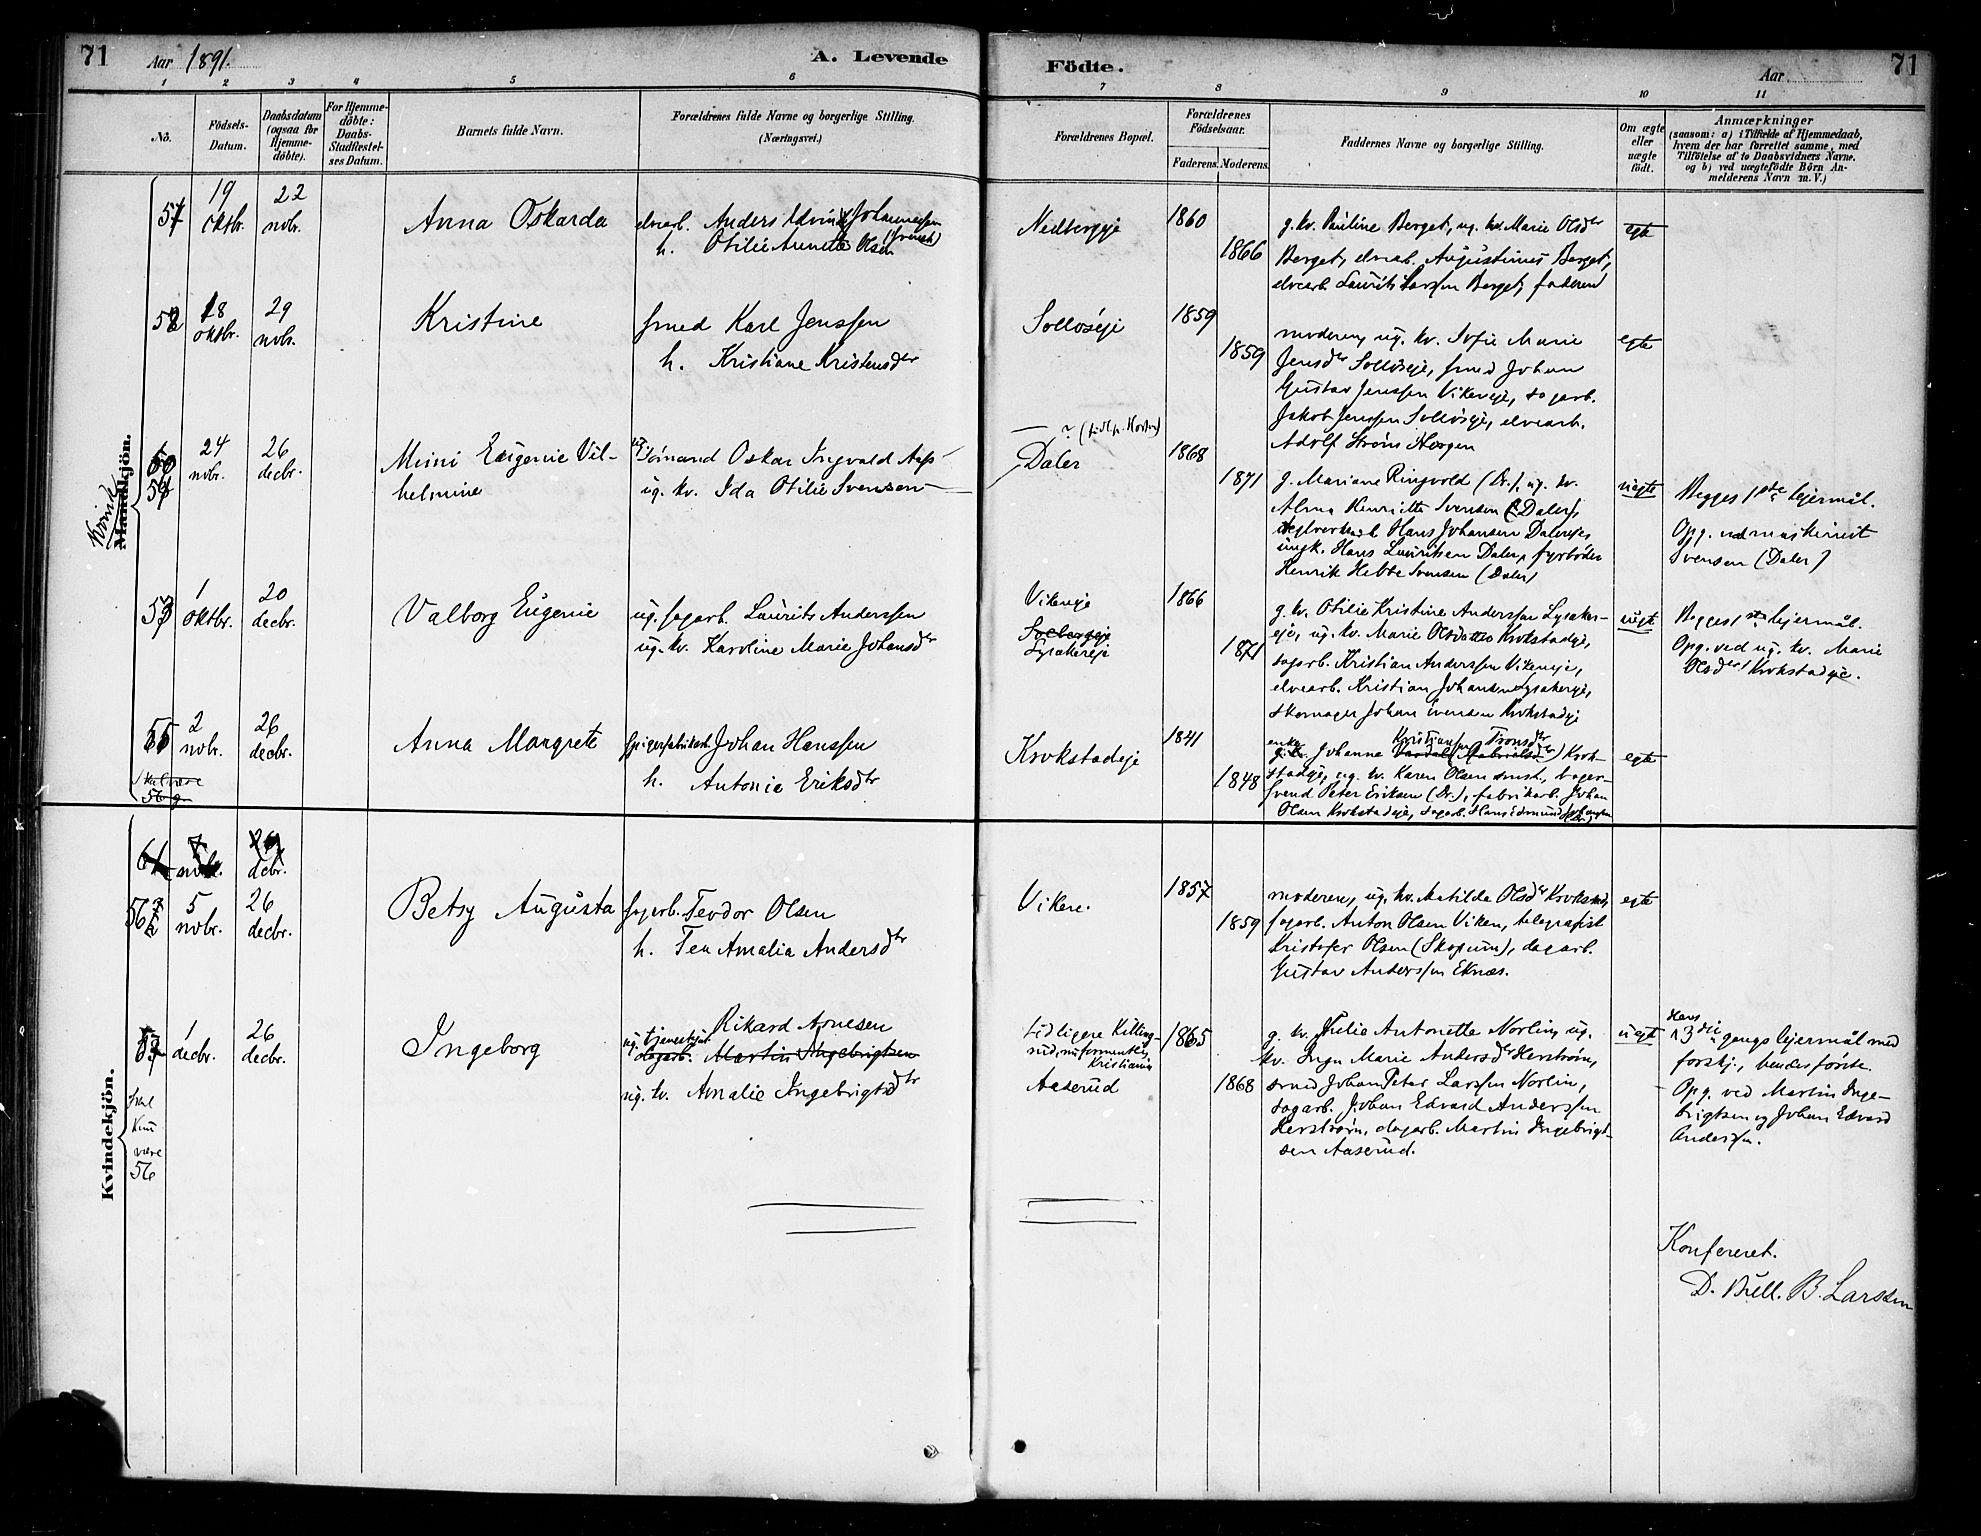 71 Aar 1891. A. Levende Födte. Aar 71
1 2 3 4 5 6 7 8 9 10 11
No.
Födsels-Datum.
Daabsdatum (ogsaa for Hjemme-döbte).
For Hjemme-döbte: Daabs-Stadfæstel-ses Datum.
Barnets fulde Navn.
Forældrenes fulde Navne og borgerlige Stilling.
(Næringsvei.)
Forældrenes Bopæl.
Forældrenes Födselsaar.
Faderens. Moderens.
Faddernes Navne og borgerlige Stilling.
Om ægte eller uægte födt.
Anmærkninger
(saasom: a) i Tilfælde af Hjemmedaab,
hvem der har forrettet samme, med
Tilföielse af to Daabsvidners Navne.
og b) ved uægtefödte Börn An-
melderens Navn m. V.)
Kvinde
Mandkjön.
19 oktbr.
22 nvbr.
Anna Oskarda
elvearb. Anders Edvin Johannessen
h. Otilie Annette Olsen (svensk)
Nedbergeje
1860
1866
g. kv. Pauline Berget, ug. kv. Marie Olsdtr
Berget, elvearb. Augustinus Berget,
elvearb. Laurits Larssen Berget, faderen
egte
18 oktbr.
29 nvbr.
Kristine
smed Karl Jenssen
h. Kristiane Kristensdtr
Solloseje
1859
1859
moderen, ug. kv. Sofie Marie
Jensdtr Solloseje, smed Johan
Gustav Jenssen Vikeneje, dagarb.
Jakob Jenssen Solloseje, elvearb.
Adolf Strøm Horgen
egte
24 nvbr.
26 decbr.
Mimi Eugenie Vil-
helmine
ug. Sömand Oskar Ingvald
ug. kv. Ida Otilie Svensen
? (tidl. p. Horten)
Daler
1868
1871
g. Mariane Ringvold (Dr.), ug. kv.
Alma Henriette Svensen (Daler),
Hans Johansen Dalereje,
ungk. Hans Lauritsen Daler, fyrbøder
Henrik Hebbe Svensen (Daler)
uegte
Begges 1ste lejermål.
Opg. ved maskinist
Svensen (Daler)
1 oktbr.
20 decbr.
Valborg Eugenie
ug. sagarb. Laurits Anderssen
ug. kv. Karoline Marie Johansdtr
Vikeneje
Solbergeje
Lysakereje
1866
1871
g. kv. Otilie Kristine Anderssen Lysaker-
eje, ug. kv. Marie Olsdatter Krokstadeje,
dagarb. Kristian Anderssen Vikeneje,
elvearb. Kristian Johansen Lysakereje,
skomager Johan Evensen Krokstadeje
uegte
Begges 1ste lejermål.
Opg. ved ug. kv. Marie
Olsdtr Krokstadeje.
2 nvbr.
26 decbr.
Anna Margrete
spigerfabrikarb. Johan Hanssen
h. Antonie Eriksdtr
Krokstadeje
1841
1848
enke Johanne Kristiansen Tronsdtr Krok-
stadeje, ug. kv. Karen Olsen smst., bager-
svend Peter Eriksen (Dr.), fabrikarb. Johan
Olsen Krokstadeje, dagarb. Hans Edmund Johansen
egte
Kvindekjön.
7 nvbr.
decbr.
5 nvbr.
26 decbr.
Betsy Augusta
sagarb. Teodor Olsen
h. Tea Amalia Andersdtr
Viken.
1857
1859
moderen, ug. kv. Matilde Olsdtr Krokstad,
sagarb. Anton Olsen Viken, telegrafist
Kristofer Olsen (Skopum), dagarb.
Gustav Anderssen Eknæs.
egte
57
1 decbr.
26 decbr.
Ingeborg
Rikard Arnesen
ug. tjenestgut
dagarb. Martin Ingebrigtsen
ug. kv. Amalie Ingebrigtsdtr
tidligere Killing-
rud, nu formentlig
Kristiania
Aaserud
1865
1868
g. kv. Julie Antonette Norlin, ug.
kv. Inga Marie Andersdtr Herstrøm,
smed Johan Peter Larssen Norlin,
dagarb. Johan Edvard Anderssen
Herstrøm, dagarb. Martin Ingebrigt-
sen Aaserud.
uegte
Hans
3die gangs lejermål med
forskj., hendes første.
Opg. ved Martin Inge-
brigtsen og Johan Edvard
Anderssen.
skal
kun
være
56
Konfereret.
D. Bull. B. Larssen